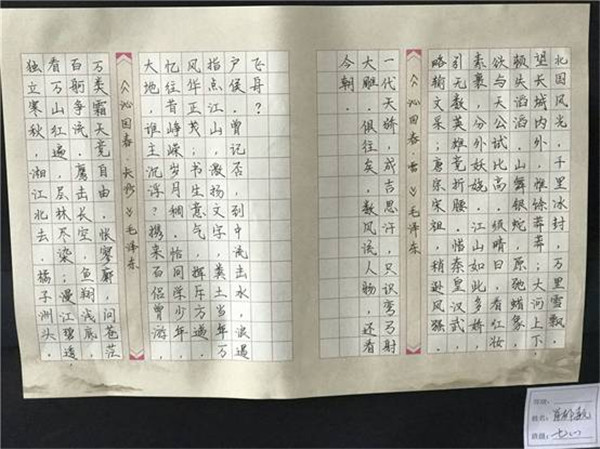 北国风光，千里冰封，万里雪飘。
望长城内外，惟馀莽莽；大河上下，
顿失滔滔。山舞银蛇，原驰蜡象，
欲与天公试比高。须晴日，看红妆
素裹，分外妖娆。江山如此多娇，
引无数英雄竞折腰。惜秦皇汉武，
略输文采；唐宗宋祖，稍逊风骚。
《沁园春·雪》毛泽东
一代天骄，成吉思汗，只识弯弓射
大雕。俱往矣，数风流人物，还看
今朝。
独立寒秋，湘江北去，橘子洲头，
看万山红遍，层林尽染；漫江碧透，
百舸争流。鹰击长空，鱼翔浅底，
万类霜天竞自由。怅寥廓，问苍茫
《沁园春·长沙》毛泽东
大地，谁主沉浮？携来百侣曾游，
忆往昔峥嵘岁月稠。恰同学少年，
风华正茂；书生意气，挥斥方遒。
指点江山，激扬文字，粪土当年万
户侯。曾记否，到中流击水，浪遏
飞舟？
姓名：
班级：